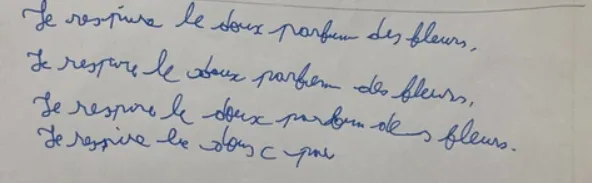 Je respire le doux parfum des fleurs,
Je respire le doux parfum des fleurs,
Je respire le doux parfum des fleurs.
Je respire le doux